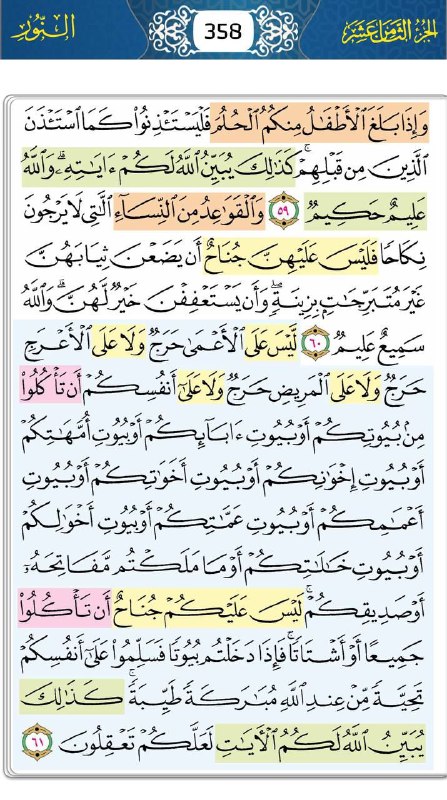 الجزء الثامن عشر 358 النور
وَإِذَا بَلَغَ ٱلْأَطْفَٰلُ مِنكُمُ ٱلْحُلُمَ فَلْيَسْتَـْٔذِنُوا۟ كَمَا ٱسْتَـْٔذَنَ
ٱلَّذِينَ مِن قَبْلِهِمْ ۚ كَذَٰلِكَ يُبَيِّنُ ٱللَّهُ لَكُمْ ءَايَٰتِهِۦ ۗ وَٱللَّهُ
عَلِيمٌ حَكِيمٌ ٥٩ وَٱلْقَوَٰعِدُ مِنَ ٱلنِّسَآءِ ٱلَّٰتِى لَا يَرْجُونَ
نِكَاحًا فَلَيْسَ عَلَيْهِنَّ جُنَاحٌ أَن يَضَعْنَ ثِيَابَهُنَّ
غَيْرَ مُتَبَرِّجَٰتٍۭ بِزِينَةٍ ۖ وَأَن يَسْتَعْفِفْنَ خَيْرٌ لَّهُنَّ ۗ وَٱللَّهُ
سَمِيعٌ عَلِيمٌ ٦٠ لَّيْسَ عَلَى ٱلْأَعْمَىٰ حَرَجٌ وَلَا عَلَى ٱلْأَعْرَجِ
حَرَجٌ وَلَا عَلَى ٱلْمَرِيضِ حَرَجٌ وَلَا عَلَىٰٓ أَنفُسِكُمْ أَن تَأْكُلُوا۟
مِنۢ بُيُوتِكُمْ أَوْ بُيُوتِ ءَابَآئِكُمْ أَوْ بُيُوتِ أُمَّهَٰتِكُمْ
أَوْ بُيُوتِ إِخْوَٰنِكُمْ أَوْ بُيُوتِ أَخَوَٰتِكُمْ أَوْ بُيُوتِ
أَعْمَٰمِكُمْ أَوْ بُيُوتِ عَمَّٰتِكُمْ أَوْ بُيُوتِ أَخْوَٰلِكُمْ
أَوْ بُيُوتِ خَٰلَٰتِكُمْ أَوْ مَا مَلَكْتُم مَّفَاتِحَهُۥٓ
أَوْ صَدِيقِكُمْ ۚ لَيْسَ عَلَيْكُمْ جُنَاحٌ أَن تَأْكُلُوا۟
جَمِيعًا أَوْ أَشْتَاتًا ۚ فَإِذَا دَخَلْتُم بُيُوتًا فَسَلِّمُوا۟ عَلَىٰٓ أَنفُسِكُمْ
تَحِيَّةً مِّنْ عِندِ ٱللَّهِ مُبَٰرَكَةً طَيِّبَةً ۚ كَذَٰلِكَ
يُبَيِّنُ ٱللَّهُ لَكُمُ ٱلْءَايَٰتِ لَعَلَّكُمْ تَعْقِلُونَ ٦١